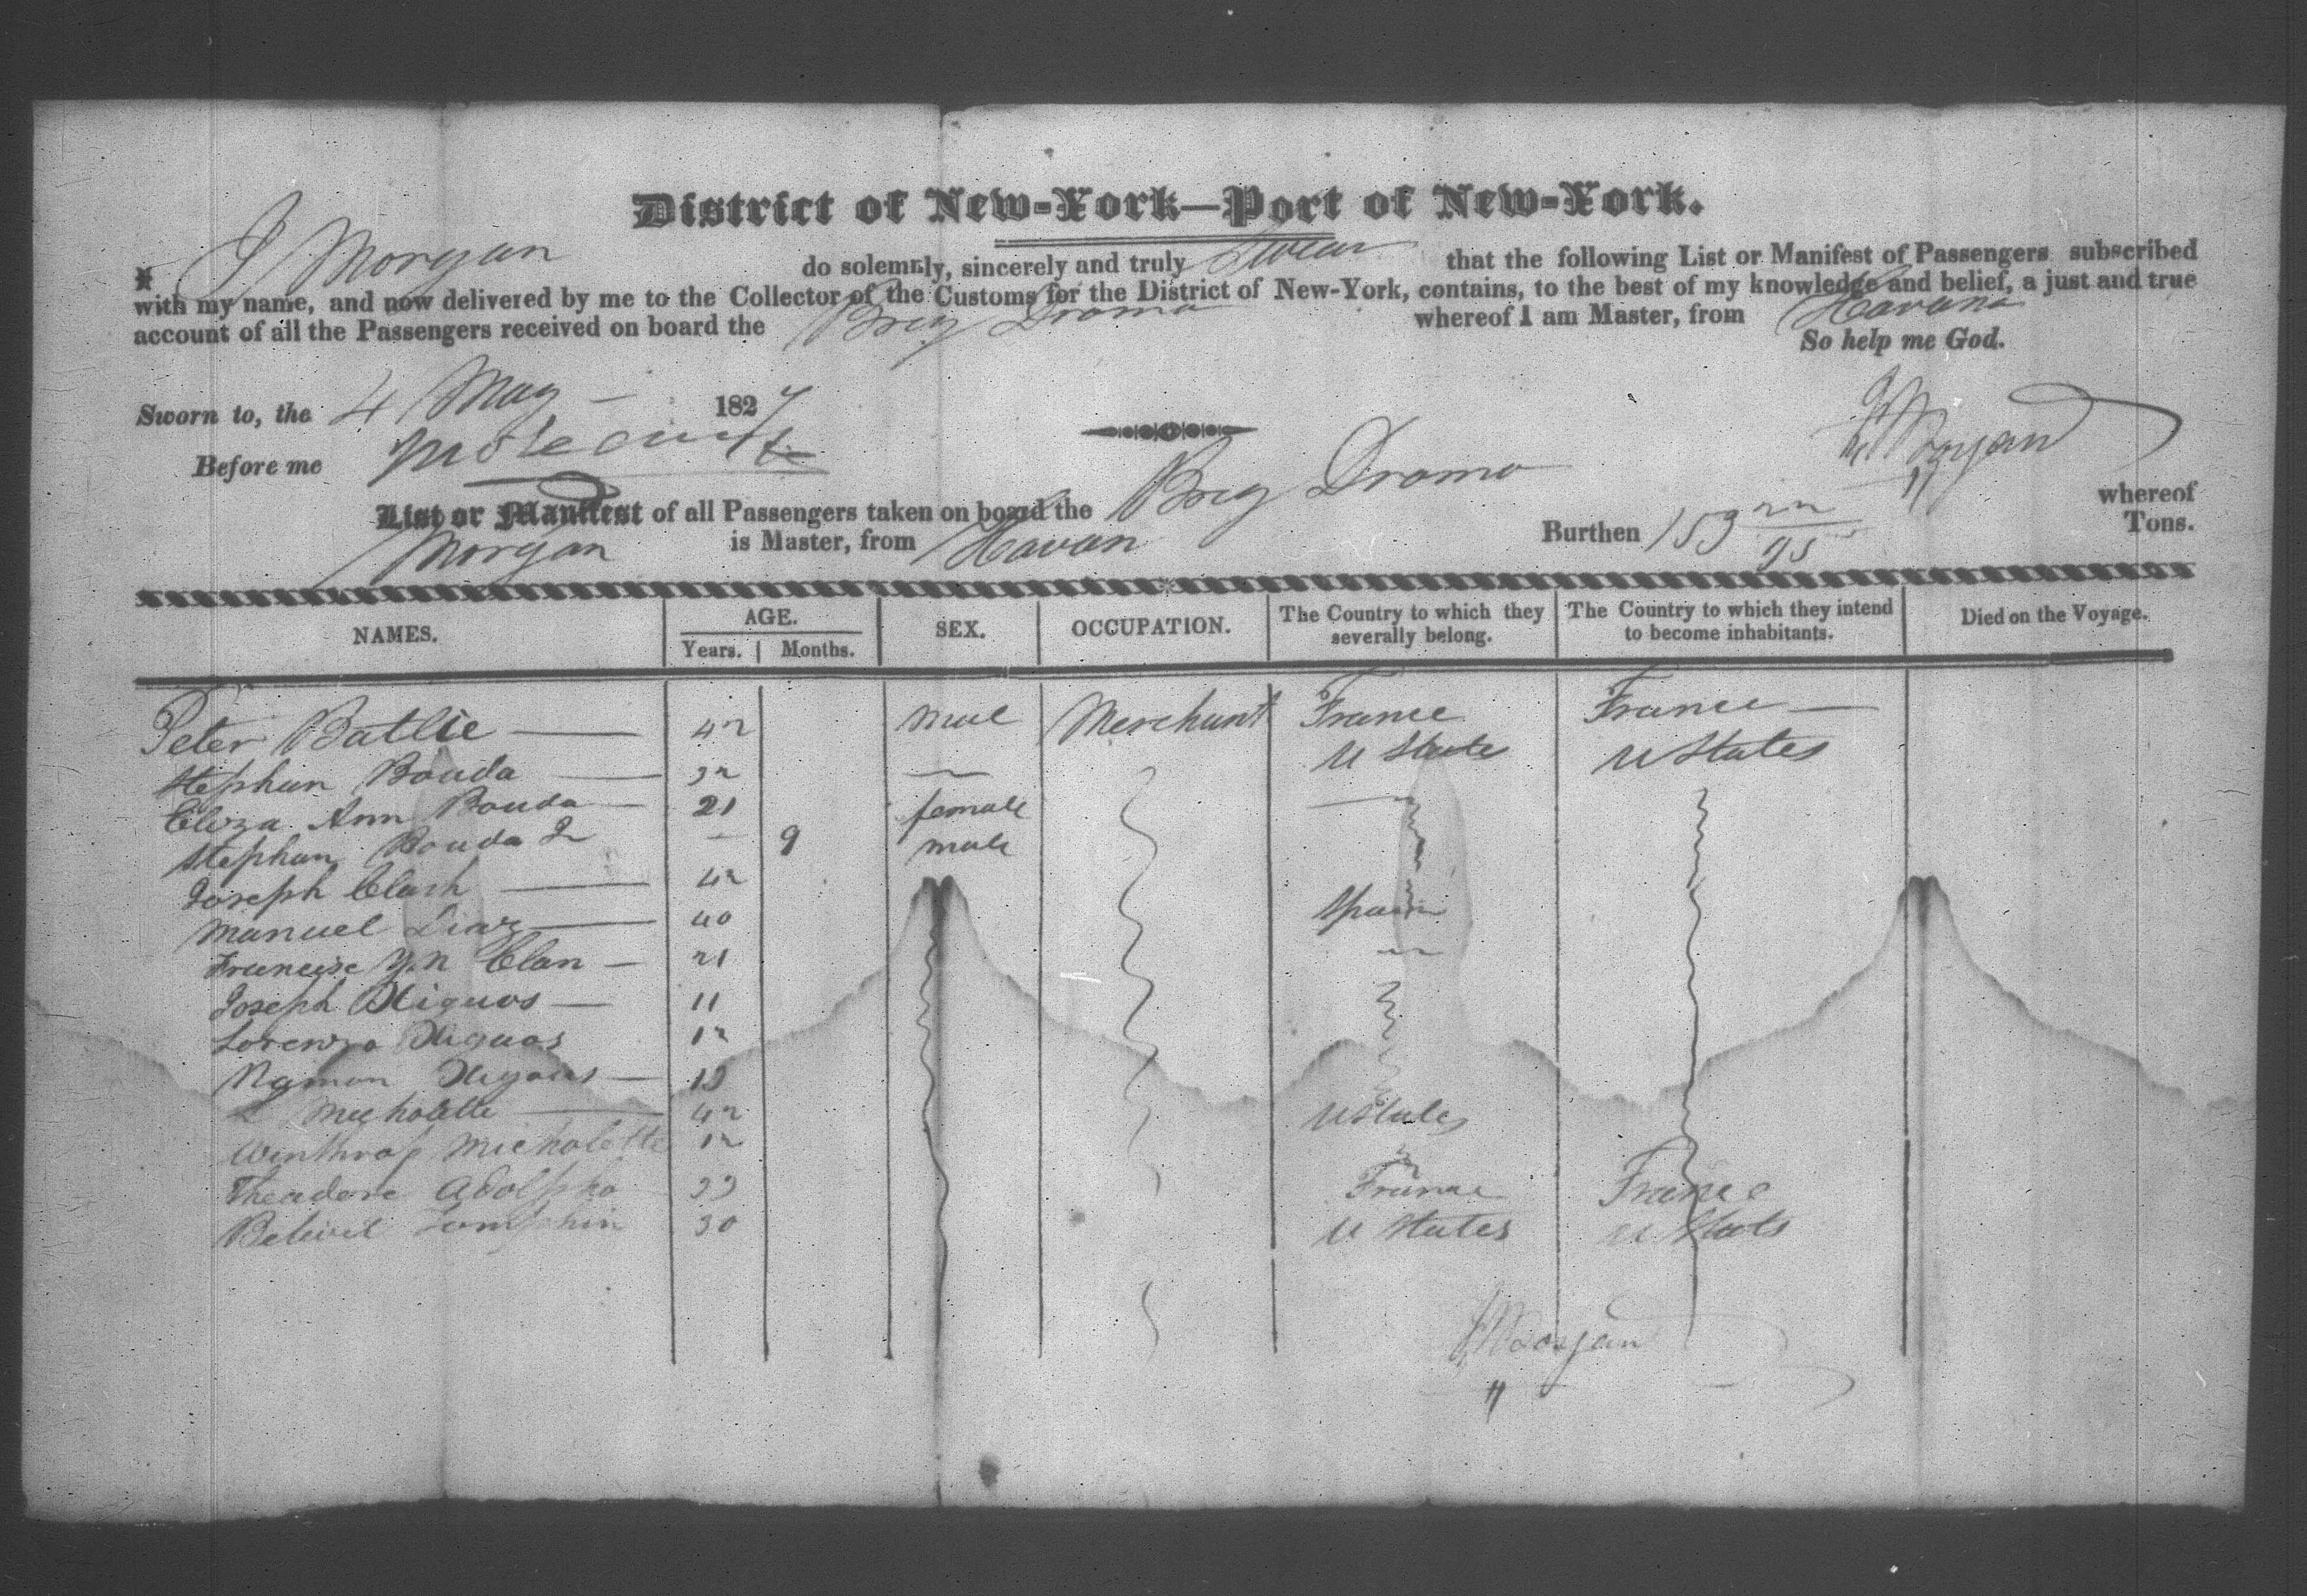 District of New-York—Port of New-York.
I, J Morgan do solemnly, sincerely and truly Swear that the following List or Manifest of Passengers subscribed
with my name, and now delivered by me to the Collector of the Customs for the District of New-York, contains, to the best of my knowledge and belief, a just and true
account of all the Passengers received on board the Brig Droma whereof I am Master, from Havana
So help me God.
Sworn to, the 4 May - 1827
J Morgan
Before me
List or Manifest of all Passengers taken on board the Brig Droma whereof
Morgan is Master, from Havan Burthen 153 22/95 Tons.
NAMES. AGE. Years. Months. SEX. OCCUPATION. The Country to which they severally belong. The Country to which they intend to become inhabitants. Died on the Voyage.
Peter Batlie — 42 mal Merchant France France —
Stephan Bouda — 32 — U State U States
Eliza Ann Bouda — 21 female —
Stephan Bouda J — 9 male
Joseph Clark — 42
Manuel Diaz — 40 Spain
Francise Clan — 21 —
Joseph — 11
Lorenzo 12
Ramon — 13
Micholette — 42 U States
Winthrop Micholette 12
Theadore Adolpho 33 France France
30 U States U Stats
J Morgan